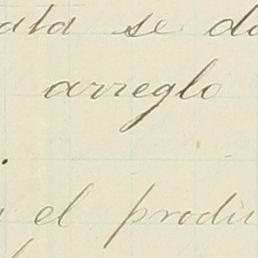 ata se di
arreglo
el produ